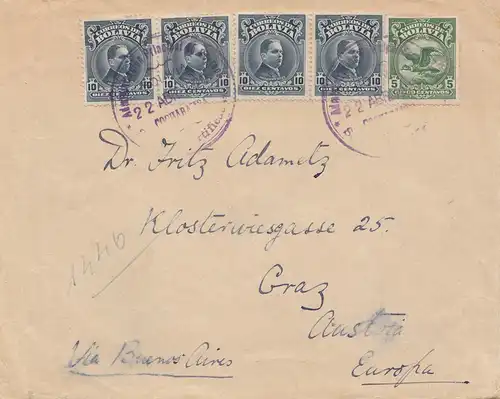 CORREOS DE CORREOS DE CORREOS DE CORREOS DE CORREOS DE
BOLIVIA BOLIVIA BOLIVIA BOLIVIA BOLIVIA
10 10 10 10 10 10 10 10 5 5
DIEZ CENTAVOS DIEZ CENTAVOS DIEZ CENTAVOS DIEZ CENTAVOS CINCO CENTAVOS
22 22
COCHABAMBA
Dr. Fritz Adametz
Klosterwiesgasse 25.
Graz
Austria
1446
Via Buenos Aires
Europa